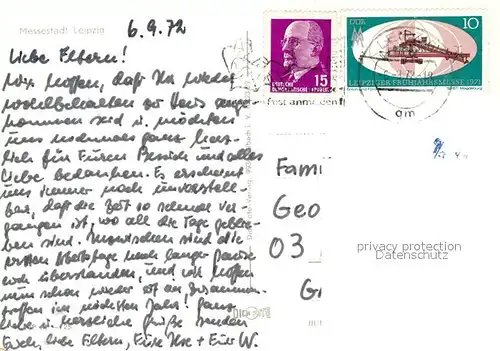 Messestadt Leipzig
6.9.72
Liebe Eltern!
Wir hoffen, daß Ihr wieder
wohlbehalten zu Haus ange-
kommen seid u. möchten
uns nochmals ganz herz-
lich für Euren Besuch und alles
Liebe bedanken. Es erscheint
uns immer noch unvorstell-
bar, daß die Zeit so schnell ver-
gangen ist, wo all die Tage geblie-
ben sind. Inzwischen sind die
ersten Arbeitstage nach langer Pause
auch überstanden, und wir hoffen
nun schon wieder auf ein Zusammen-
treffen im nächsten Jahr! Ganz
liebe u. herzliche Grüße senden
Euch, liebe Eltern, Eure Ilse + Euer W.
DEUTSCHE
DEMOKRATISCHE REPUBLIK
15
DDR
10
LEIPZIGER FRÜHJAHRSMESSE 1971
anmelden
am
Fami
Geo
03
G
privacy protection
Datenschutz